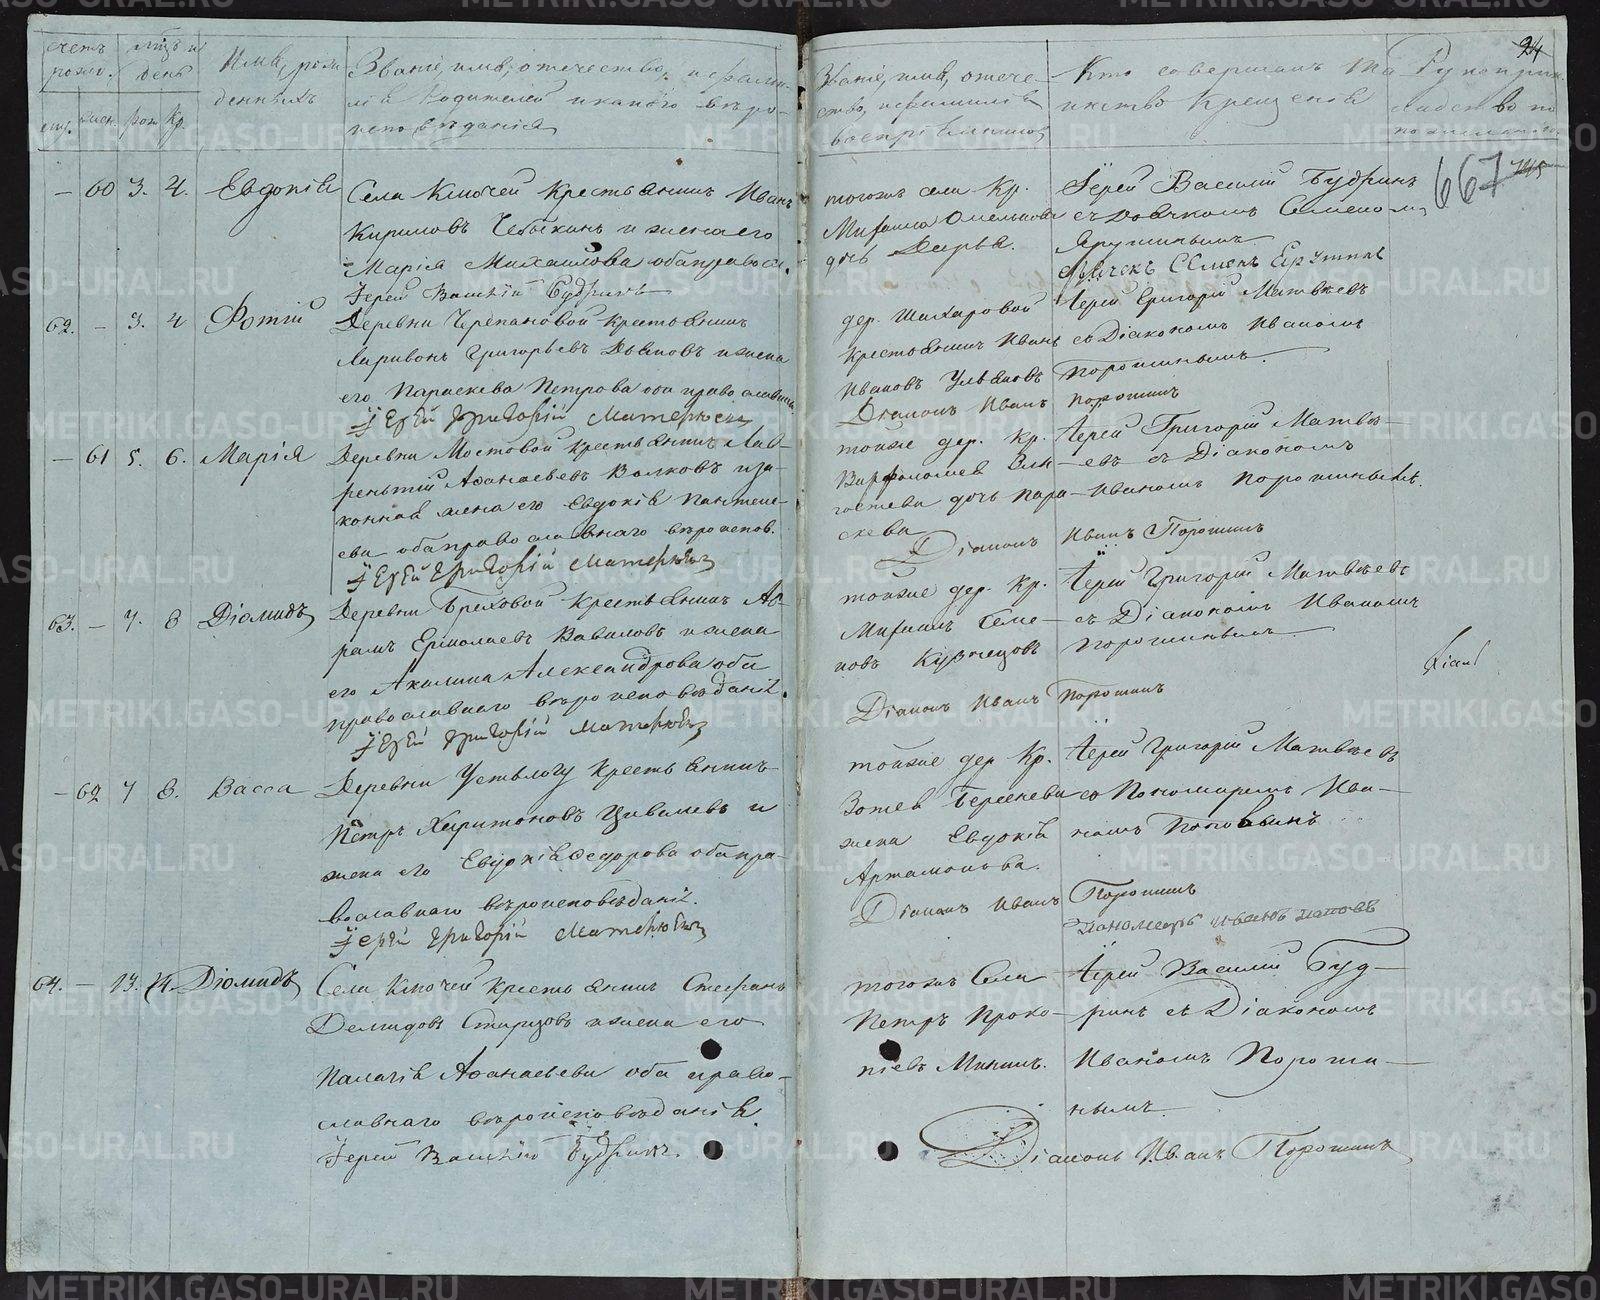 счетъ родив.
мѣсяцъ и день
Имя родившихся
Званіе, имя, отечество, и фамилія Родителей и какого вѣроисповѣданія
Званіе, имя, отечество, и фамилія воспріемниковъ
Кто совершалъ таинство Крещенія
Рукоприкладство по желанію
24
муж. жен. рож. Кр.
667
— 60 3. 4. Евдокія
Села Ключей Крестьянинъ Иванъ
Кириловъ Чебыкинъ и жена его
Марія Михаилова оба правосл.
Іерей Василій Будринъ
тогожъ села Кр.
Михаила Омелькова
дочь Дарья.
Іерей Василій Будринъ
съ дьячкомъ Семеномъ
Ярутинымъ
дьячекъ Семенъ Ярутинъ
62. — 3. 4 Фотій
Деревни Черепановой Крестьянинъ
Ларивонъ Григорьевъ Дьяковъ и жена
его Параскева Петрова оба православн.
Іерей Григорій Матвѣевъ
дер. Шихаровой
Крестьянинъ Иванъ
Ивановъ Ульяновъ
Діаконъ Иванъ Порошинъ
Іерей Григорій Матвѣевъ
съ Діакономъ Иваномъ
Порошинымъ.
— 61 5. 6. Марія
Деревни Мостовой Крестьянинъ Лав-
рентій Афанасьевъ Волковъ и за-
конная жена его Евдокія Пантеле-
ева оба православнаго вѣроиспов.
Іерей Григорій Матвѣевъ
тойже дер. Кр.
дочь Пара-
скева
Діаконъ Иванъ Порошинъ
Іерей Григорій Матвѣ-
евъ съ Діакономъ
Иваномъ Порошинымъ.
63. — 7. 8 Діомидъ
Деревни Бреховой Крестьянинъ Ав-
рамъ Ермолаевъ Вавиловъ и жена
его Акилина Александрова оба
православнаго вѣроисповѣданія.
Іерей Григорій Матвѣевъ
тойже дер. Кр.
Михаилъ Семе-
новъ Кузнецовъ
Діаконъ Иванъ Порошинъ
Іерей Григорій Матвѣевъ
съ Діакономъ Иваномъ
Порошинымъ
— 62 7 8. Васса
Деревни Устьлогу Крестьянинъ
Петръ Харитоновъ Цивилевъ и
жена его Евдокія Федорова оба пра-
вославнаго вѣроисповѣданія.
Іерей Григорій Матвѣевъ
тойже дер. Кр.
Зотея Берсенева
жена Евдокія
Артамонова.
Діаконъ Иванъ Порошинъ
Іерей Григорій Матвѣевъ
со Пономаремъ Ива-
номъ Поповымъ
Пономарь Иванъ Поповъ
64. — 13. 14 Діомидъ
Села Ключей Крестьянинъ Стефанъ
Демидовъ Старцовъ и жена его
Палагія Афанасьева оба право-
славнаго вѣроисповѣданія
Іерей Василій Будринъ.
тогожъ Села
Петръ Проко-
піевъ Мининъ.
Іерей Василій Буд-
ринъ съ Діакономъ
Иваномъ Пороши-
нымъ
Діаконъ Иванъ Порошинъ
METRIKI.GASO-URAL.RU